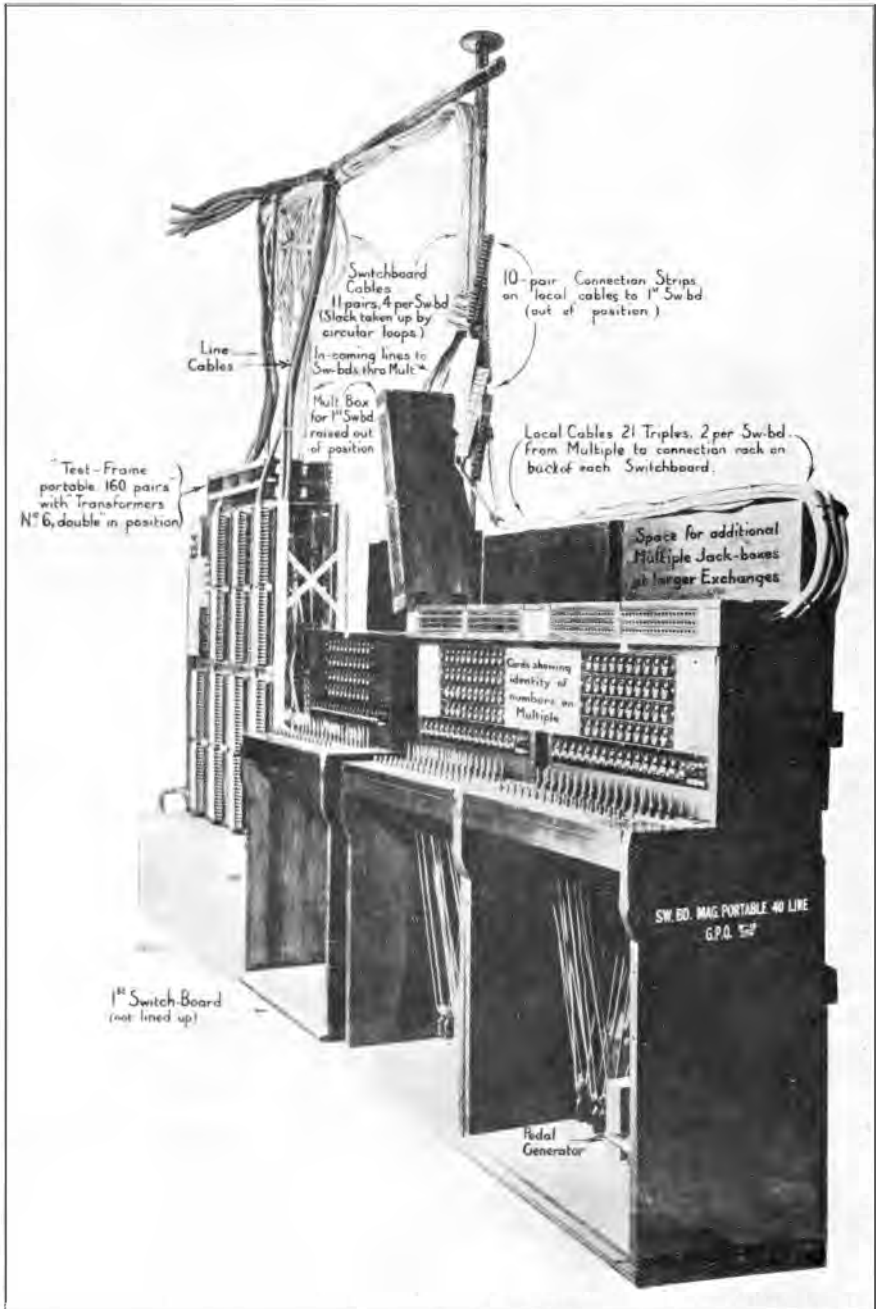 Switchboard
Cables
11 pairs, 4 per Sw.bd
(Slack taken up by
circular loops)
10-pair Connection Strips
on local cables to 1st Sw.bd
(out of position)
Line
Cables
In-coming lines to
Sw-bds thro Mult.
Mult Box
for 1st Swbd
raised out
of position
Local Cables 21 Triples, 2 per Sw-bd.
From Multiple to connection rack on
back of each Switchboard.
"Test-Frame
portable 160 pairs"
with "Transformers
No 6, double" in position
Space for additional
Multiple Jack-boxes
at larger Exchanges
Cards showing
identity of
numbers on
Multiple
SW. BD. MAG. PORTABLE. 40 LINE
G.P.O.
1st Switch-Board
(not lined up)
Pedal
Generator